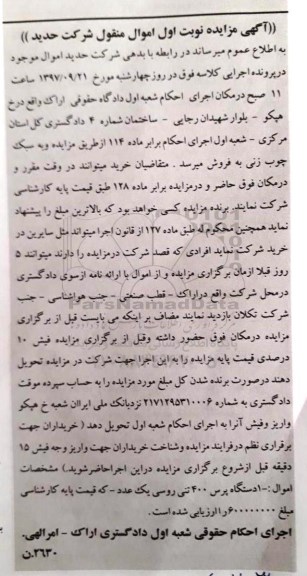 ((آگهی مزایده نوبت اول اموال منقول شرکت حدید ))
به اطلاع عموم میرساند در رابطه با بدهی شرکت حدید اموال موجود
درپرونده اجرایی کلاسه فوق در روز چهارشنبه مورخ ۱۳۹۷/۰۹/۲۱ ساعت
۱۱ صبح درمکان اجرای احکام شعبه اول دادگاه حقوقی اراک واقع درخ
هپکو - بلوار شهیدان رجایی - ساختمان شماره ۴ دادگستری کل استان
مرکزی - شعبه اول اجرای احکام برابر ماده ۱۱۴ ازطریق مزایده وبه سبک
چوب زنی به فروش میرسد . متقاضیان خرید میتوانند در وقت مقرر و
درمکان فوق حاضر و درمزایده برابر ماده ۱۲۸ طبق قیمت پایه کارشناسی
شرکت نمایند. برنده مزایده کسی خواهد بود که بالاترین مبلغ را پیشنهاد
نماید همچنین محکوم له طبق ماده ۱۲۷ از قانون اجرا میتواند مثل سایرین در
خرید شرکت نماید افرادی که قصد شرکت درمزایده را دارند میتوانند ۵
روز قبلا ازمان برگزاری مزایده و از اموال با ارائه نامه ازسوی دادگستری
درمحل شرکت واقع دراراک - قطب صنعتی - جنب هواشناسی - جنب
شرکت تکلان بازدید نمایند مضاف بر اینکه می بایست قبل از برگزاری
مزایده درمکان فوق حضور داشته وقبل از برگزاری مزایده فیش ۱۰
درصدی قیمت پایه مزایده را به این اجرا جهت شرکت در مزایده تحویل
دهند درصورت برنده شدن کل مبلغ مورد مزایده را به حساب سپرده موقت
دادگستری به شماره ۲۱۷۱۲۹۵۳۱۰۰۰۶ نزدبانک ملی ایراان شعبه خ هپکو
واریز وفیش آنرا به اجرای احکام شعبه اول تحویل دهد ( خریداران جهت
برقراری نظم درفرایند مزایده وشناخت خریداران جهت واریز وجه فیش ۱۵
دقیقه قبل ازشروع برگزاری مزایده دراین اجراحاضرشوید.) مشخصات
اموال :-۱دستگاه پرس ۴۰۰ تنی روسی یک عدد - که قیمت پایه کارشناسی
مبلغ ۶۰۰۰۰۰۰۰۰ ر ا ارزیابی شده است.
اجرای احکام حقوقی شعبه اول دادگستری اراک - امرالهی.
۲۶۳۰.ن